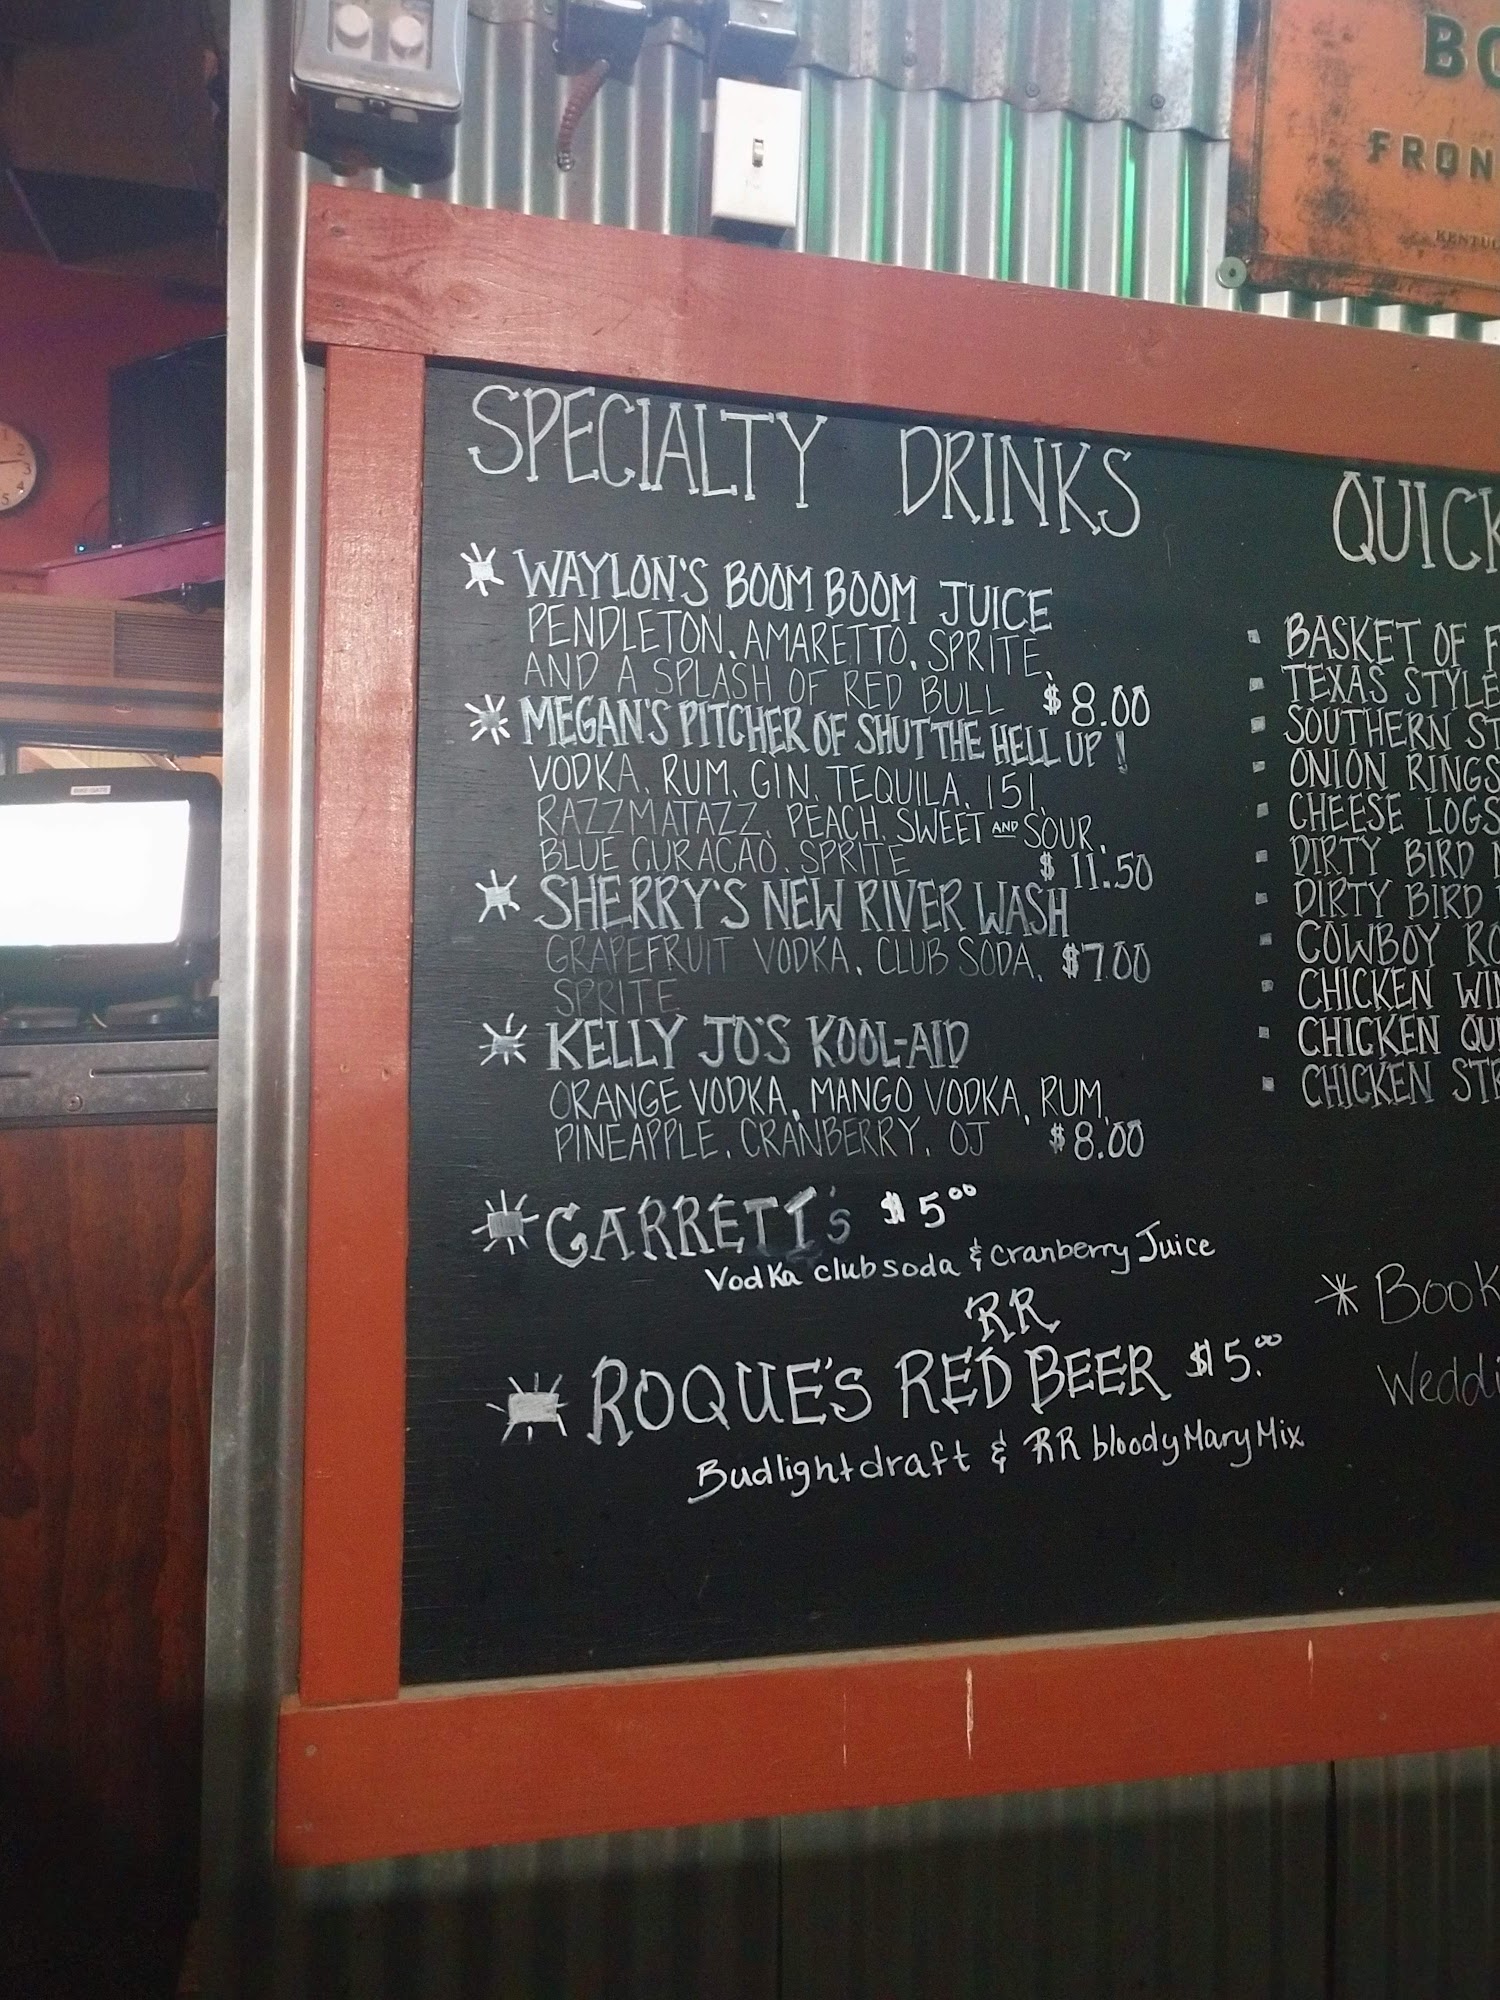 BO
FRON
KENTUC
SPECIALTY DRINKS
WAYLON'S BOOM BOOM JUICE
PENDLETON, AMARETTO, SPRITE,
AND A SPLASH OF RED BULL $8.00
MEGAN'S PITCHER OF SHUT THE HELL UP!
VODKA, RUM, GIN, TEQUILA, 151,
RAZZMATAZZ, PEACH, SWEET AND SOUR,
BLUE CURACAO, SPRITE $11.50
SHERRY'S NEW RIVER WASH
GRAPEFRUIT VODKA, CLUB SODA, $7.00
SPRITE
KELLY JO'S KOOL-AID
ORANGE VODKA, MANGO VODKA, RUM,
PINEAPPLE, CRANBERRY, OJ $8.00
GARRETT's $5.00
Vodka club soda & cranberry Juice
RR
ROQUE'S RED BEER $5.00
Budlight draft & RR bloody Mary Mix
QUICK
BASKET OF F
TEXAS STYLE
SOUTHERN ST
ONION RINGS
CHEESE LOGS
DIRTY BIRD
DIRTY BIRD
COWBOY RO
CHICKEN WIN
CHICKEN QU
CHICKEN STR
* Book
Weddi
1
2
3
4
5